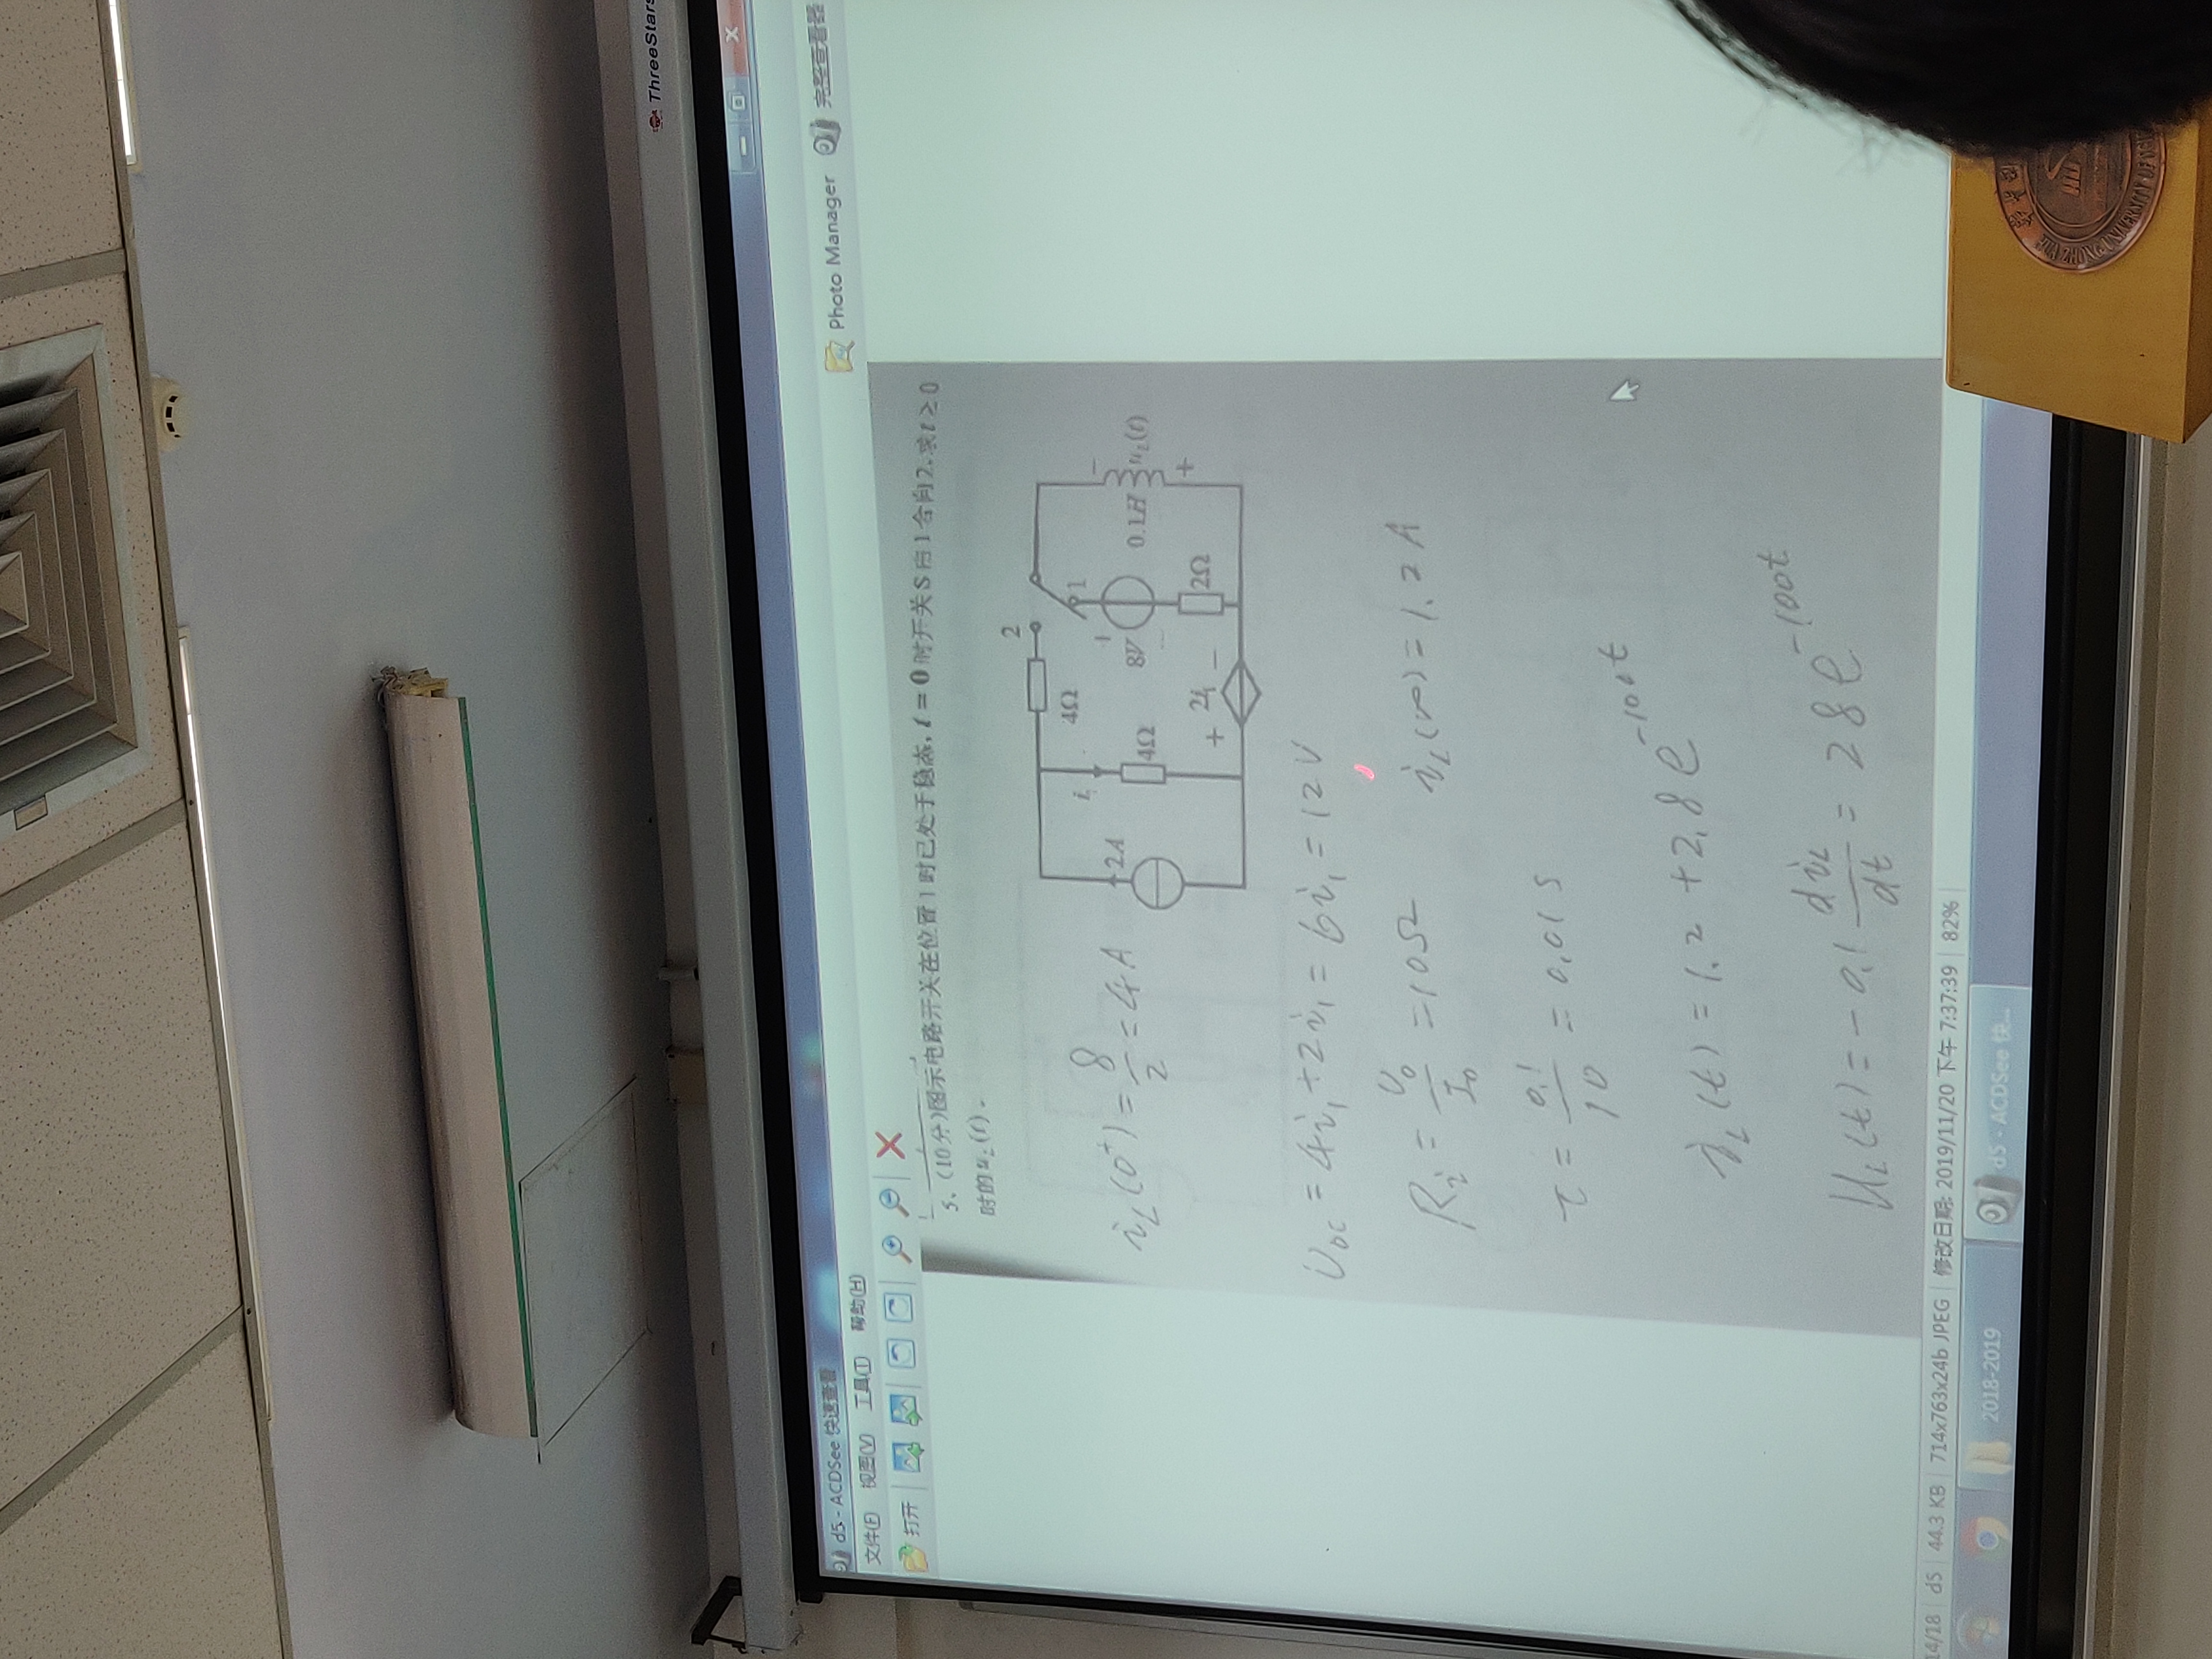 ThreeStars
d5 - ACDSee 快速查看
文件(F) 视图(V) 工具(T) 帮助(H)
打开
Photo Manager 完整查看器
5、(10分)图示电路开关在位置1时已处于稳态, t = 0 时开关S由1合向2,求t ≥ 0
时的 u_L(t) 。
2
4Ω
i₁
1
2A
+
8V
−
4Ω
0.1H
−
u_L(t)
+
2Ω
+ 2i₁ −
i_L(0⁺) = 8/2 = 4A
U_OC = 4i₁ + 2i₁ = 6i₁ = 12V
R_i = U_0/I_0 = 10Ω i_L(∞) = 1.2A
τ = 0.1/10 = 0.01 s
i_L(t) = 1.2 + 2.8e^{-100t}
U_L(t) = -0.1 di_L/dt = 28e^{-100t}
14/18 d5 44.3 KB 714x763x24b JPEG 修改日期: 2019/11/20 下午 7:37:39 82%
2018-2019 d5 - ACDSee 快...